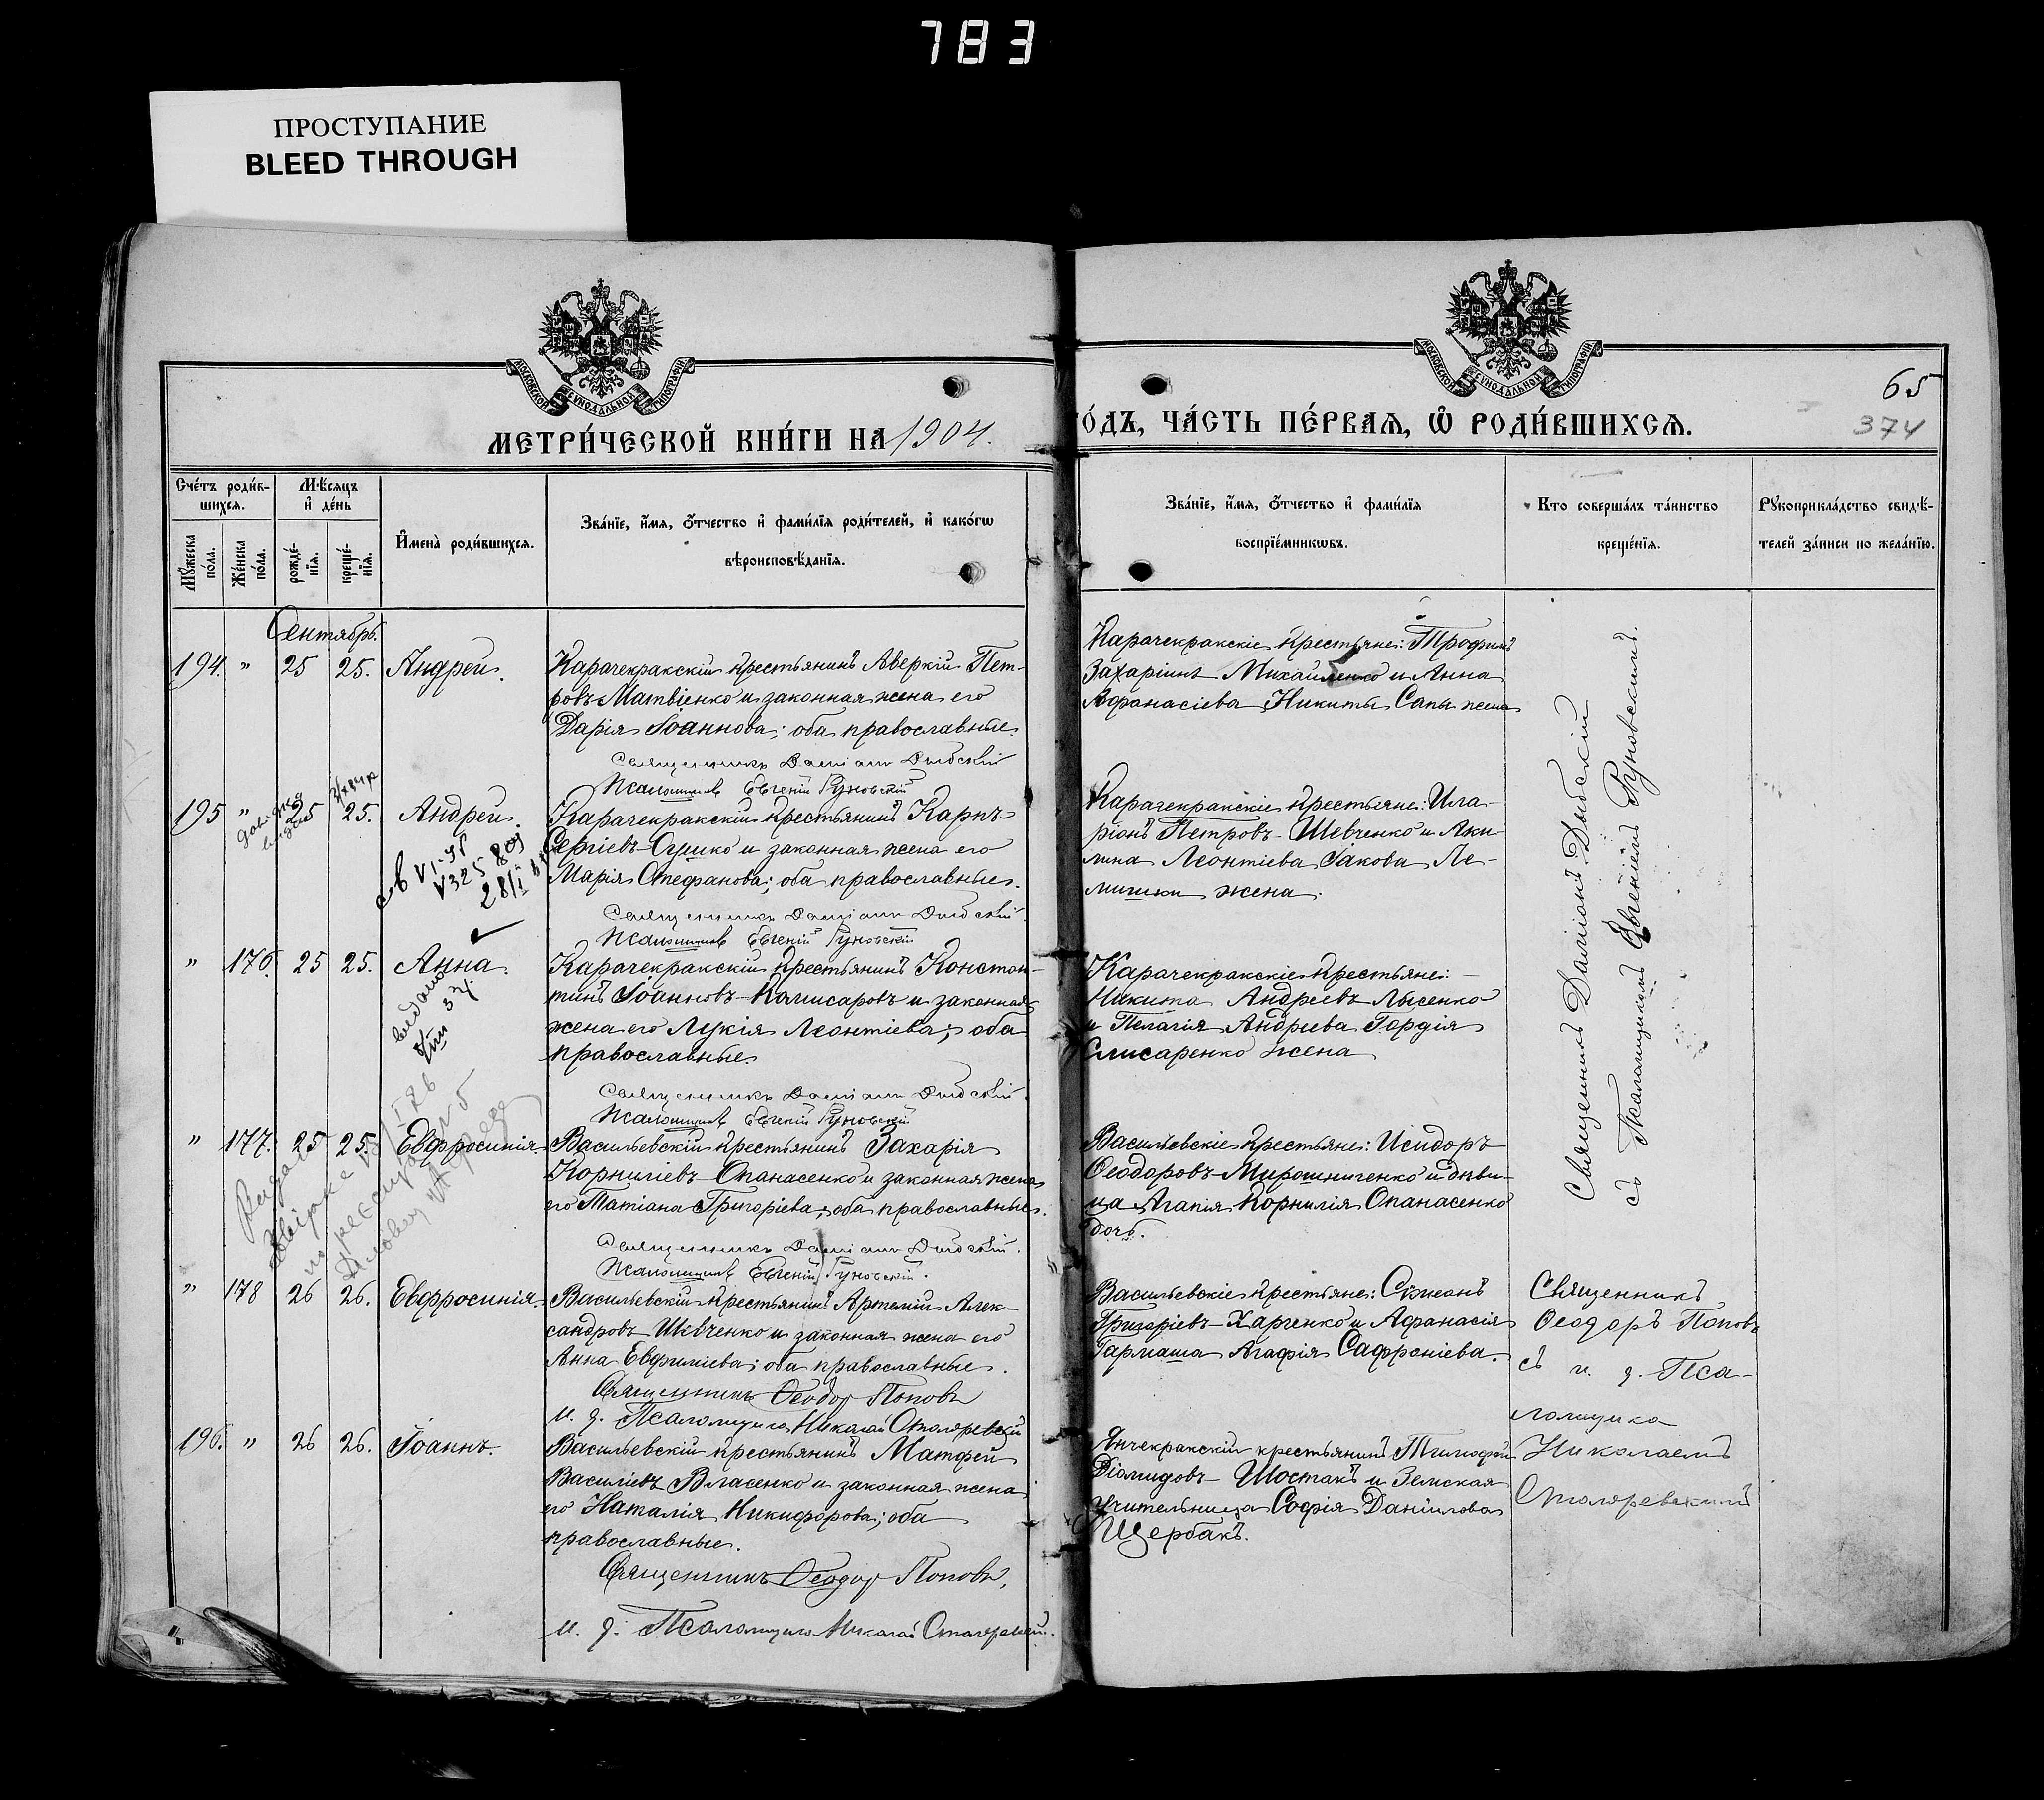 783
ПРОСТУПАНИЕ
BLEED THROUGH
МОСКОВСКОЙ СѴНОДАЛЬНОЙ ТИПОГРАФІИ
МОСКОВСКОЙ СѴНОДАЛЬНОЙ ТИПОГРАФІИ
65
374
МЕТРИ́ЧЕСКОЙ КНИ́ГИ НА 1904.
О́ДЪ, ЧА́СТЬ ПЕ́РВАѦ, Ѿ РОДИ́ВШИХСѦ.
Сче́тъ роди́вшихсѧ.
Мꙋ́жеска по́ла.
Же́нска по́ла.
Мѣ́сѧцъ и҆ де́нь
рожде́нїѧ.
креще́нїѧ.
И҆мена̀ роди́вшихсѧ.
Зва́нїе, и҆́мѧ, ѻ҆́тчество и҆ фами́лїѧ роди́телей, и҆ како́гѡ
вѣроисповѣ́данїѧ.
Зва́нїе, и҆́мѧ, ѻ҆́тчество и҆ фами́лїѧ
воспрїе́мникѡвъ.
Кто соверша́лъ та́инство
креще́нїѧ.
Рꙋкоприкла́дство свидѣ́-
телей за́писи по жела́нїю.
Сентябрь.
194. " 25 25. Андрей.
Карачекракскій крестьянинъ Аверкій Пет-
ровъ Матвіенко и законная жена его
Дарія Іоаннова; оба православные.
Священникъ Даміанъ Дыбскій
Псаломщикъ Евгеній Руновскій
Карачекракскіе крестьяне: Трофимъ
Захаріинъ Михайленко и Анна
Афанасіева Никиты Сапы жена
195 " 25 25. Андрей.
Карачекракскій крестьянинъ Карпъ
Сергіевъ и законная жена его
Марія Стефанова; оба православные.
Священникъ Даміанъ Дыбскій.
Псаломщикъ Евгеній Руновскій
Карачекракскіе крестьяне: Ила-
ріонъ Петровъ-Шевченко и Аки-
лина Леонтіева Іакова Ле-
мишки жена.
" 176. 25 25. Анна.
Карачекракскій крестьянинъ Констан-
тинъ Іоанновъ-Камисаровъ и законная
жена его Лукія Леонтіева; оба
православные.
Священникъ Даміанъ Дыбскій.
Псаломщикъ Евгеній Руновскій
Карачекракскіе крестьяне:
Никита Андреевъ Лысенко
и Пелагія Андреева Гордія
Слисаренко жена
" 177. 25 25. Евфросинія
Васильевскій крестьянинъ Захарія
Корниліевъ-Опанасенко и законная жена
его Татіана Григоріева; оба православные.
Священникъ Даміанъ Дыбскій.
Псаломщикъ Евгеній Руновскій.
Васильевскіе крестьяне: Исидоръ
Ѳеодоровъ-Мирошниченко и дѣви-
ца Агапія Корнилія Опанасенко
дочь.
Священникъ Даміанъ Дыбскій
съ Псаломщикомъ Евгеніемъ Руновскимъ.
" 178 26 26. Евфросинія.
Васильевскій крестьянинъ Артемій Алек-
сандровъ Шевченко и законная жена его
Анна Евфиміева; оба православные.
Священникъ Ѳеодор Поповъ
и. д. Псаломщика Николай Столяревскій
Васильевскіе крестьяне: Сѵмеонъ
Григоріевъ-Харченко и Афанасія
Гармаша Агафія Сафроніева.
Священникъ
Ѳеодоръ Поповъ
съ и. д. Пса-
ломщика
Николаемъ
Столяревскимъ
196. " 26 26. Іоаннъ.
Васильевскій крестьянинъ Матфей
Василіевъ Власенко и законная жена
его Наталія Никифорова; оба
православные.
Священникъ Ѳеодор Поповъ,
и. д. Псаломщика Николай Столяревскій.
Янчекракскій крестьянинъ Тимофей
Діомидовъ-Шостакъ и Земская
учительница Софія Даніилова
Щербакъ.